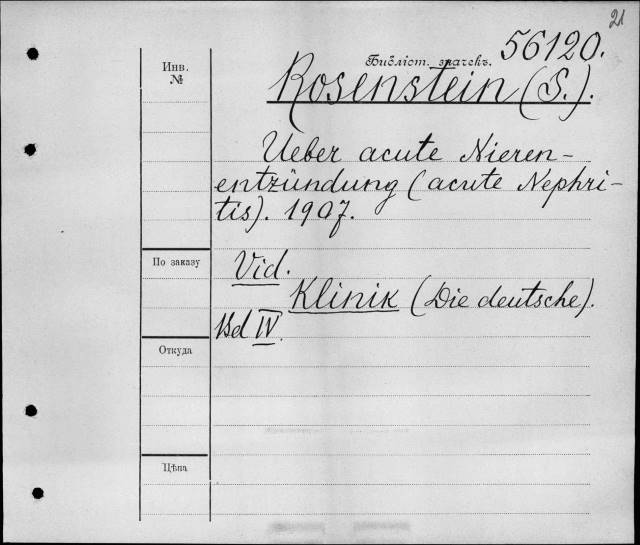 21
Инв.
№
Библіот. значекъ. 56120.
Rosenstein (S.).
Ueber acute Nieren-
entzündung (acute Nephri-
tis). 1907.
По заказу
Vid.
Klinik (Die deutsche).
Bd IV.
Откуда
Цѣна